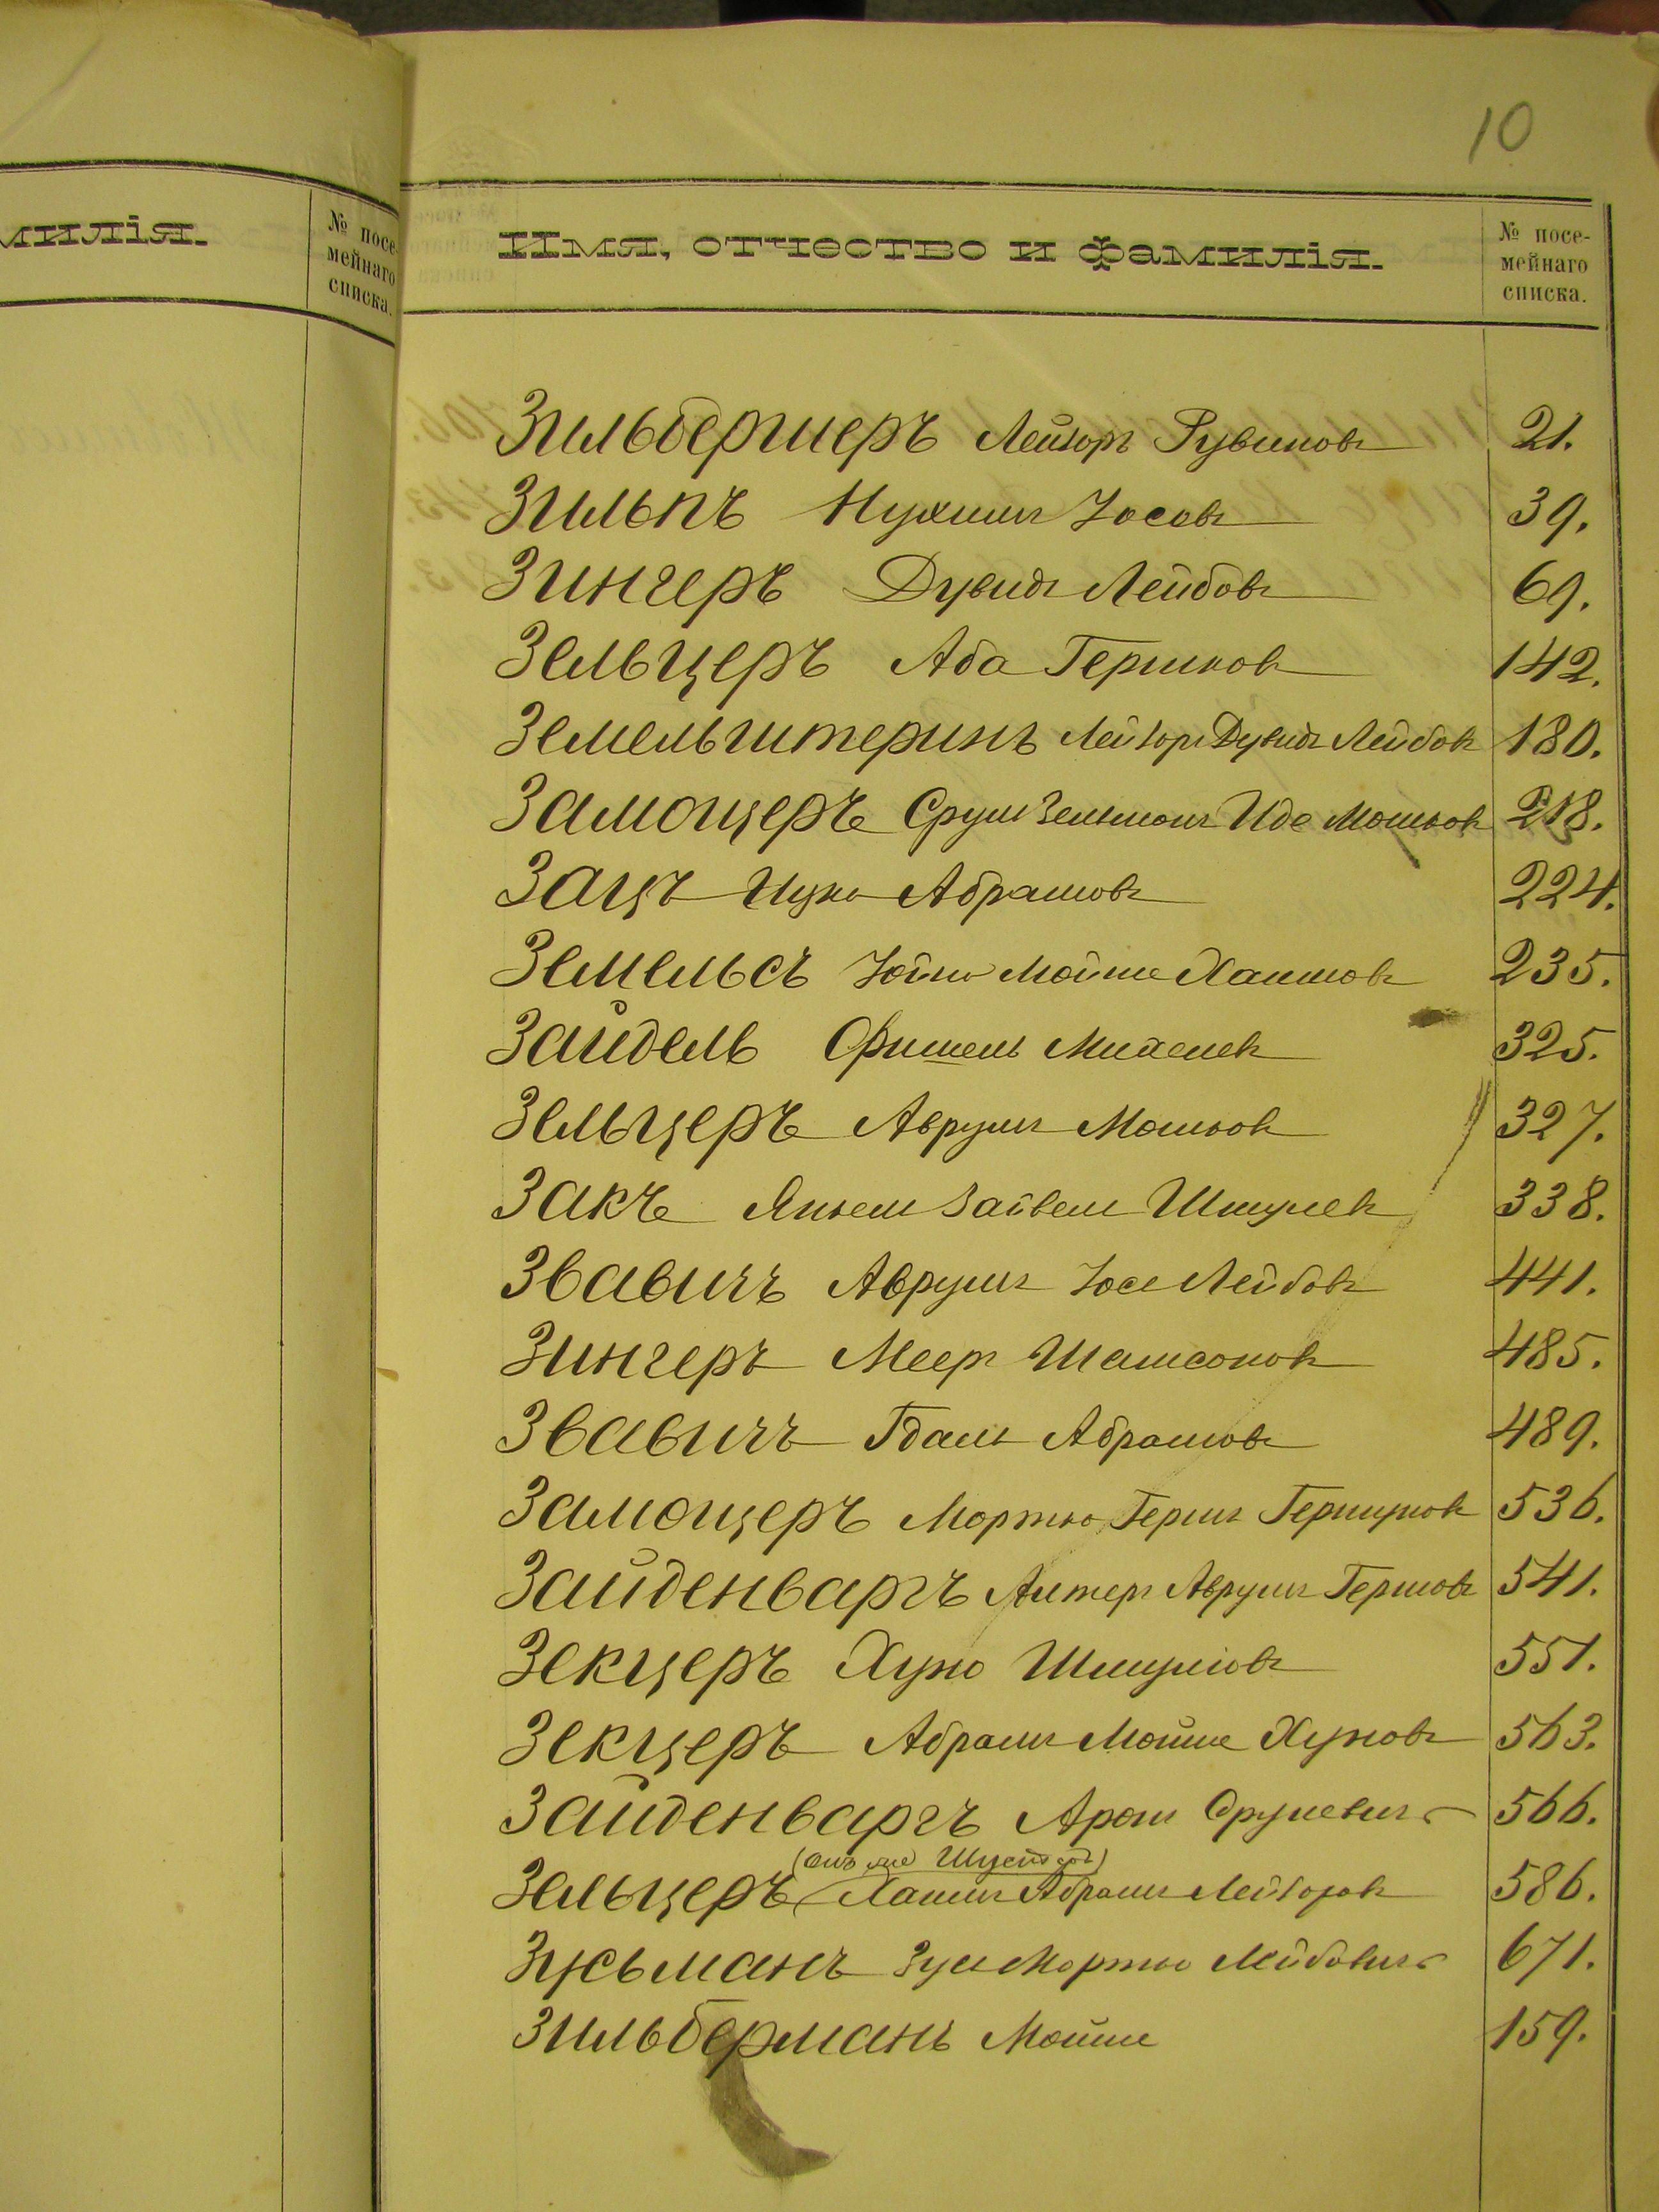 10
милія.
№ посе-
мейнаго
списка.
Имя, отчество и фамилія.
№ посе-
мейнаго
списка.
Зильбершеръ Лейзоръ Рувиновъ 21.
Зильпъ Нухимъ Іосовъ 39.
Зингеръ Дувидъ Лейбовъ 69.
Зельцеръ Аба Гершковъ 142.
Земельштеринъ Лейзоръ Дувидъ Лейбовъ 180.
Замощеръ Срулъ Зельманъ Иде Мошковъ 218.
Зацъ Абрамовъ 224.
Земельсъ Мойше Хаимовъ 235.
Зайдель Фишель Михелевъ 325.
Зельцеръ Аврумъ Мошковъ 327.
Закъ Янкель Зайвель Шмулевъ 338.
Звавичъ Аврумъ Іосе Лейбовъ 441.
Зингеръ Мееръ Шамсоновъ 485.
Звавичъ Гдаль Абрамовъ 489.
Замощеръ Мортко Гершъ Гершуновъ 536.
Зайденваргъ Алтеръ Аврумъ Гершовъ 541.
Зекцеръ Хуно Шмуловъ 551.
Зекцеръ Абрамъ Мойше Хуновъ 563.
Зайденваргъ Аронъ Срулевичъ 566.
(онъ же)
Зельцеръ Хаимъ Абрамъ Лейзоровъ 586.
Зусьманъ Зусь Мортко Лейбовичъ 671.
Зильберманъ Мойше 159.